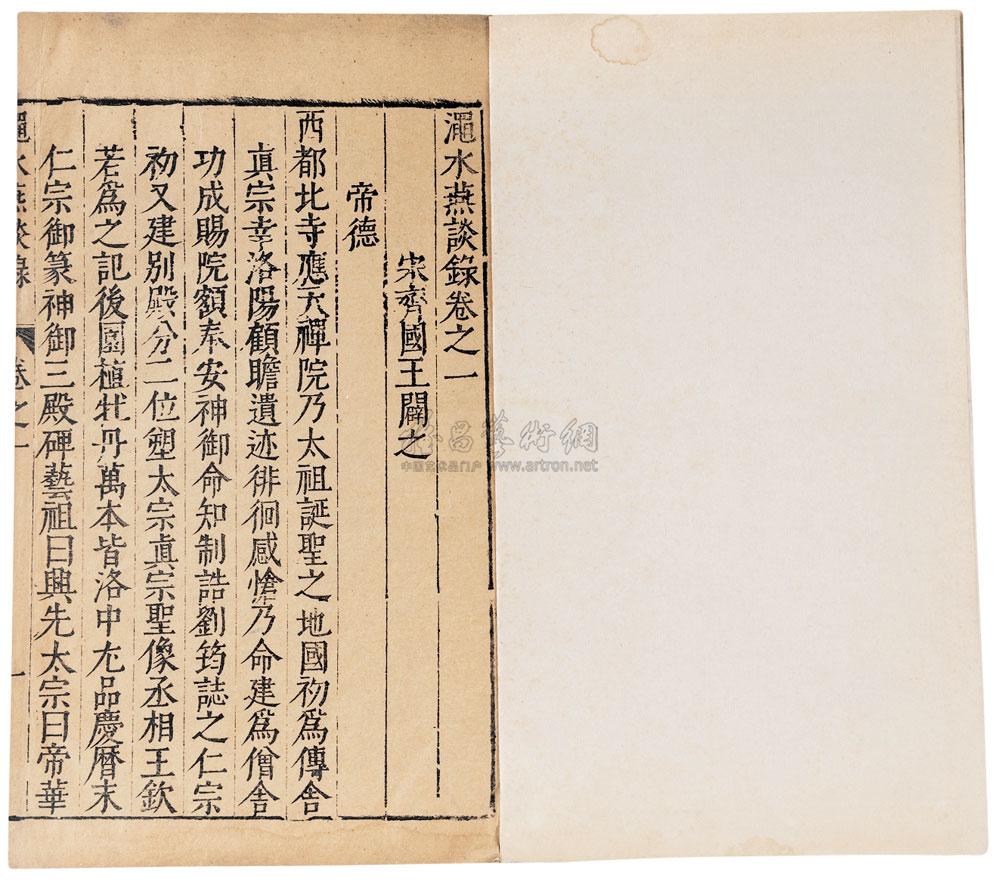 澠水燕談錄卷之一
宋齊國王闢之
帝德
西都北寺應天禪院乃太祖誕聖之地國初爲傳舎
真宗幸洛陽顧瞻遺迹徘徊感愴乃命建爲僧舎
功成賜院額奉安神御命知制誥劉筠誌之仁宗
初又建别殿分二位塑太宗真宗聖像丞相王欽
若爲之記後園植牡丹萬本皆洛中尤品慶曆末
仁宗御篆神御三殿碑藝祖曰興先太宗曰帝華
澠水燕談録 卷之一 一
藝術網
中国艺术品门户 www.artron.net